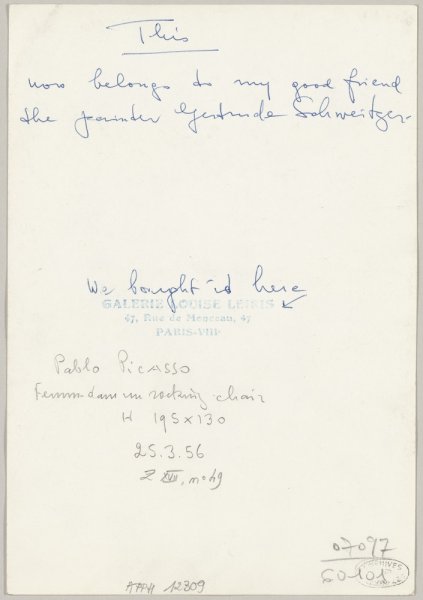 This
now belongs to my good friend
the painter Gertrude Schweitzer.
We bought it here
GALERIE LOUISE LEIRIS
47, Rue de Monceau, 47
PARIS-VIIIe
Pablo PICASSO
Femme dans un rocking-chair
195 x 130
25.3.56
Z XVII. n° 49
07097
60101
ARCHIVES
APPH 12809